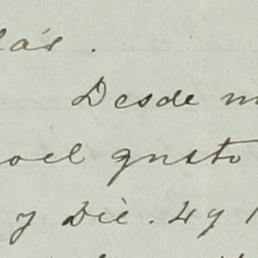 lás.
Desde m
oel gusto
y Dic. 4 y 1